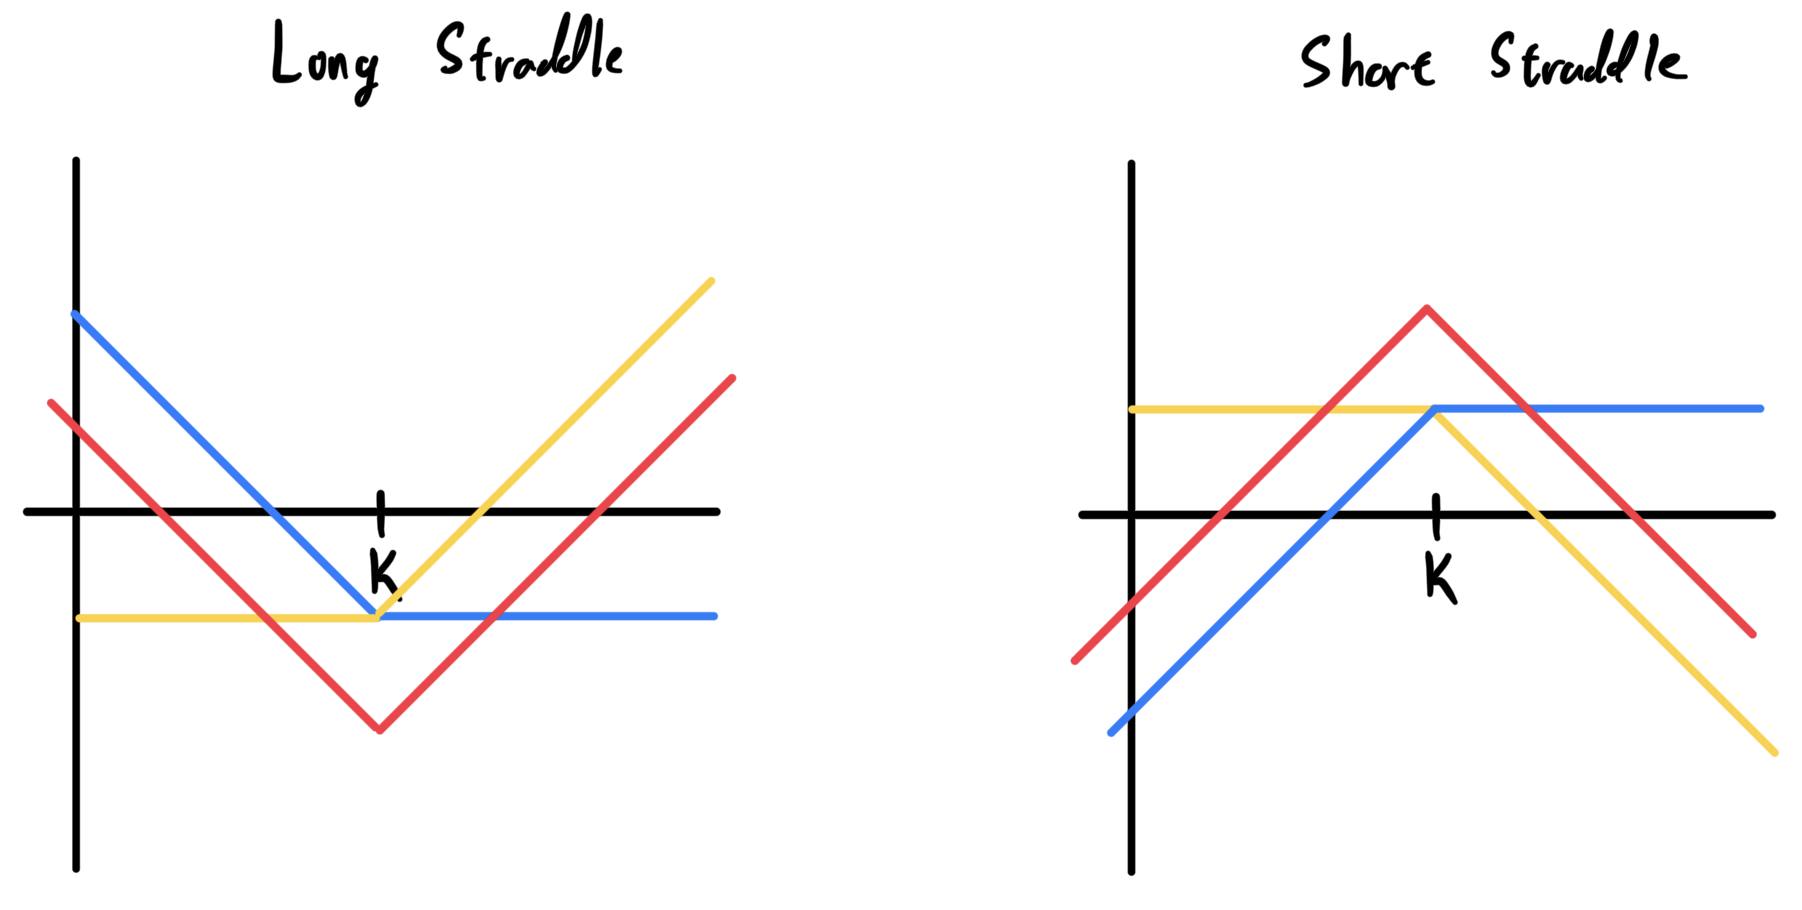 Long Straddle
Short Straddle
K
K